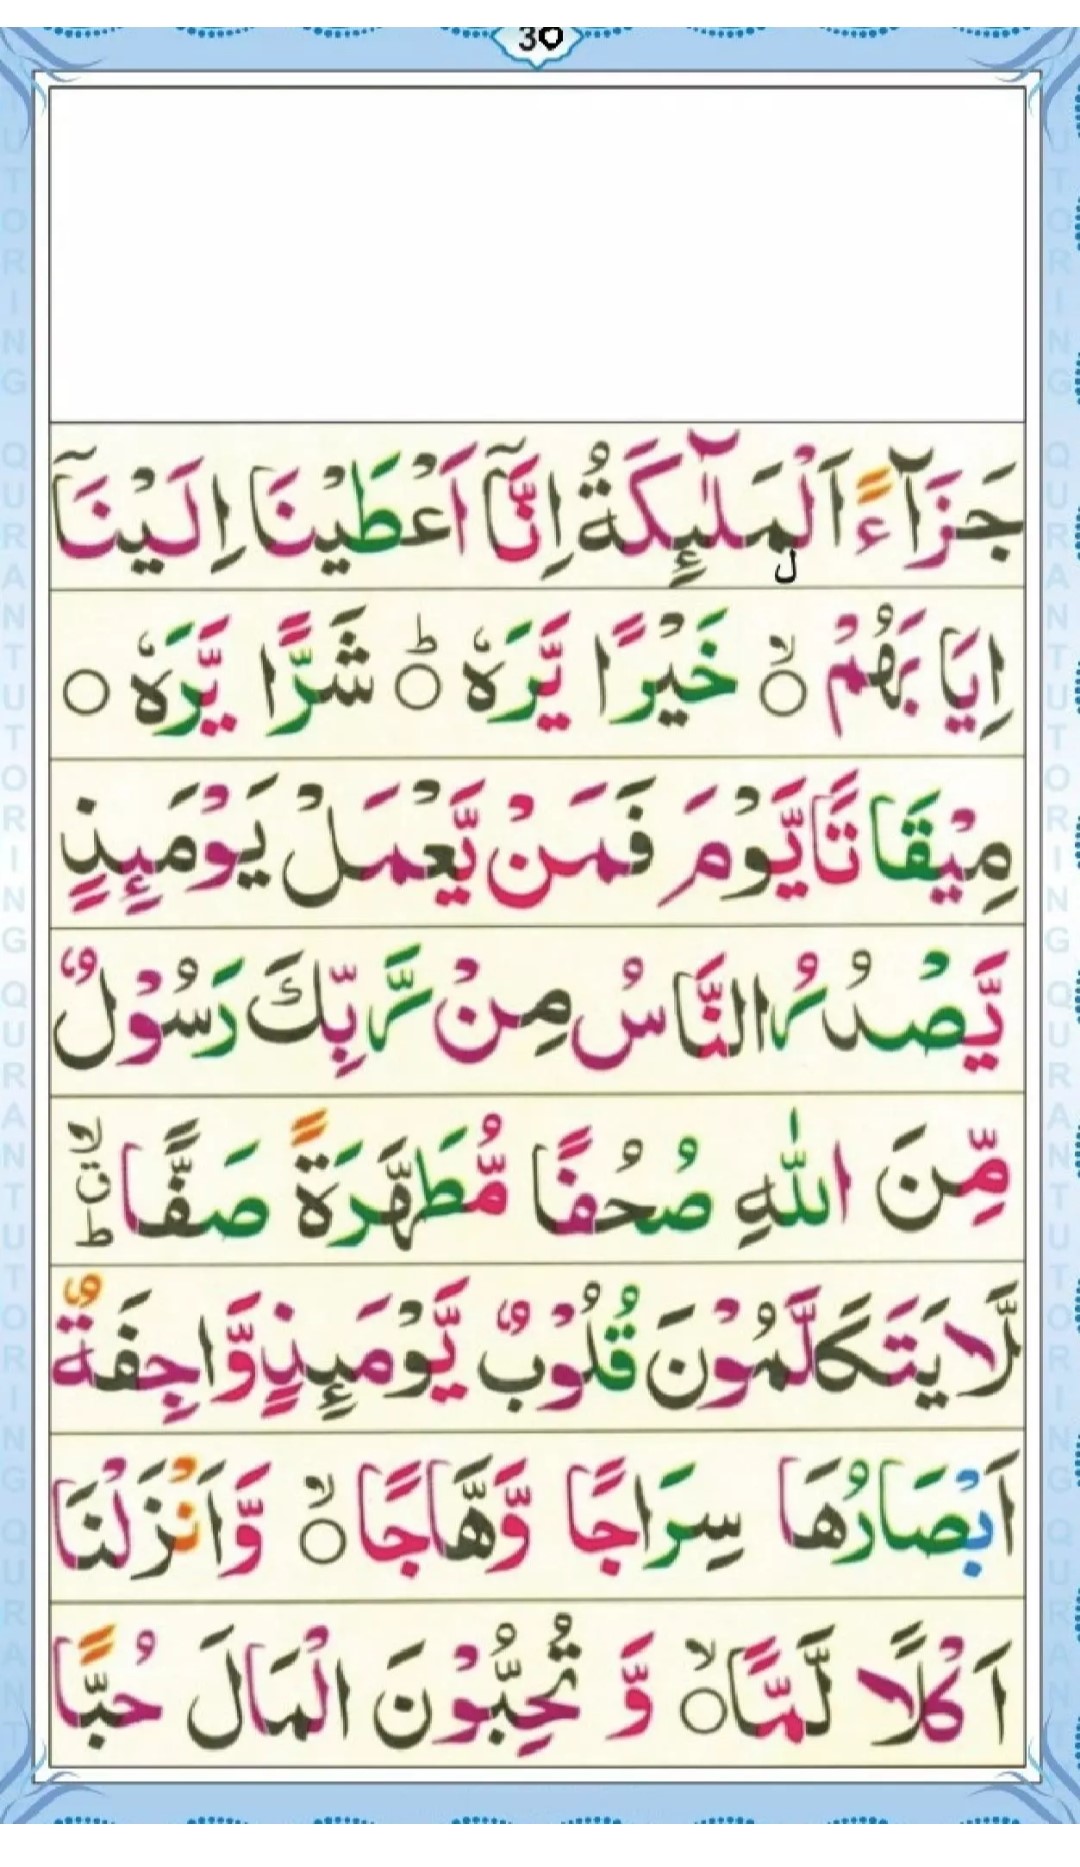 30
جَزَآءً اَلْمَلٰٓئِكَةُ اِنَّآ اَعْطَيْنَا اِلَيْنَآ
ل
اِيَا بَهُمْ ۙ○ خَيْرًا يَّرَهٗ ؕ○ شَرًّا يَّرَهٗ ○
مِيْقَا تًا يَّوْمَ فَمَنْ يَّعْمَلْ يَوْمَئِذٍ
يَّصْدُرُ النَّاسُ مِنْ رَّبِّكَ رَسُوْلٌ
مِّنَ اللّٰهِ صُحُفًا مُّطَهَّرَةً صَفًّا ۙ ق ط
لَّا يَتَكَلَّمُوْنَ قُلُوْبٌ يَّوْمَئِذٍ وَّاجِفَةٌ
اَبْصَارُهَا سِرَاجًا وَّهَّاجًا ۙ○ وَّاَنْزَلْنَا
اَكْلًا لَّمًّا ۙ○ وَّ تُحِبُّوْنَ الْمَالَ حُبًّا
QURAN TUTORING
QURAN TUTORING